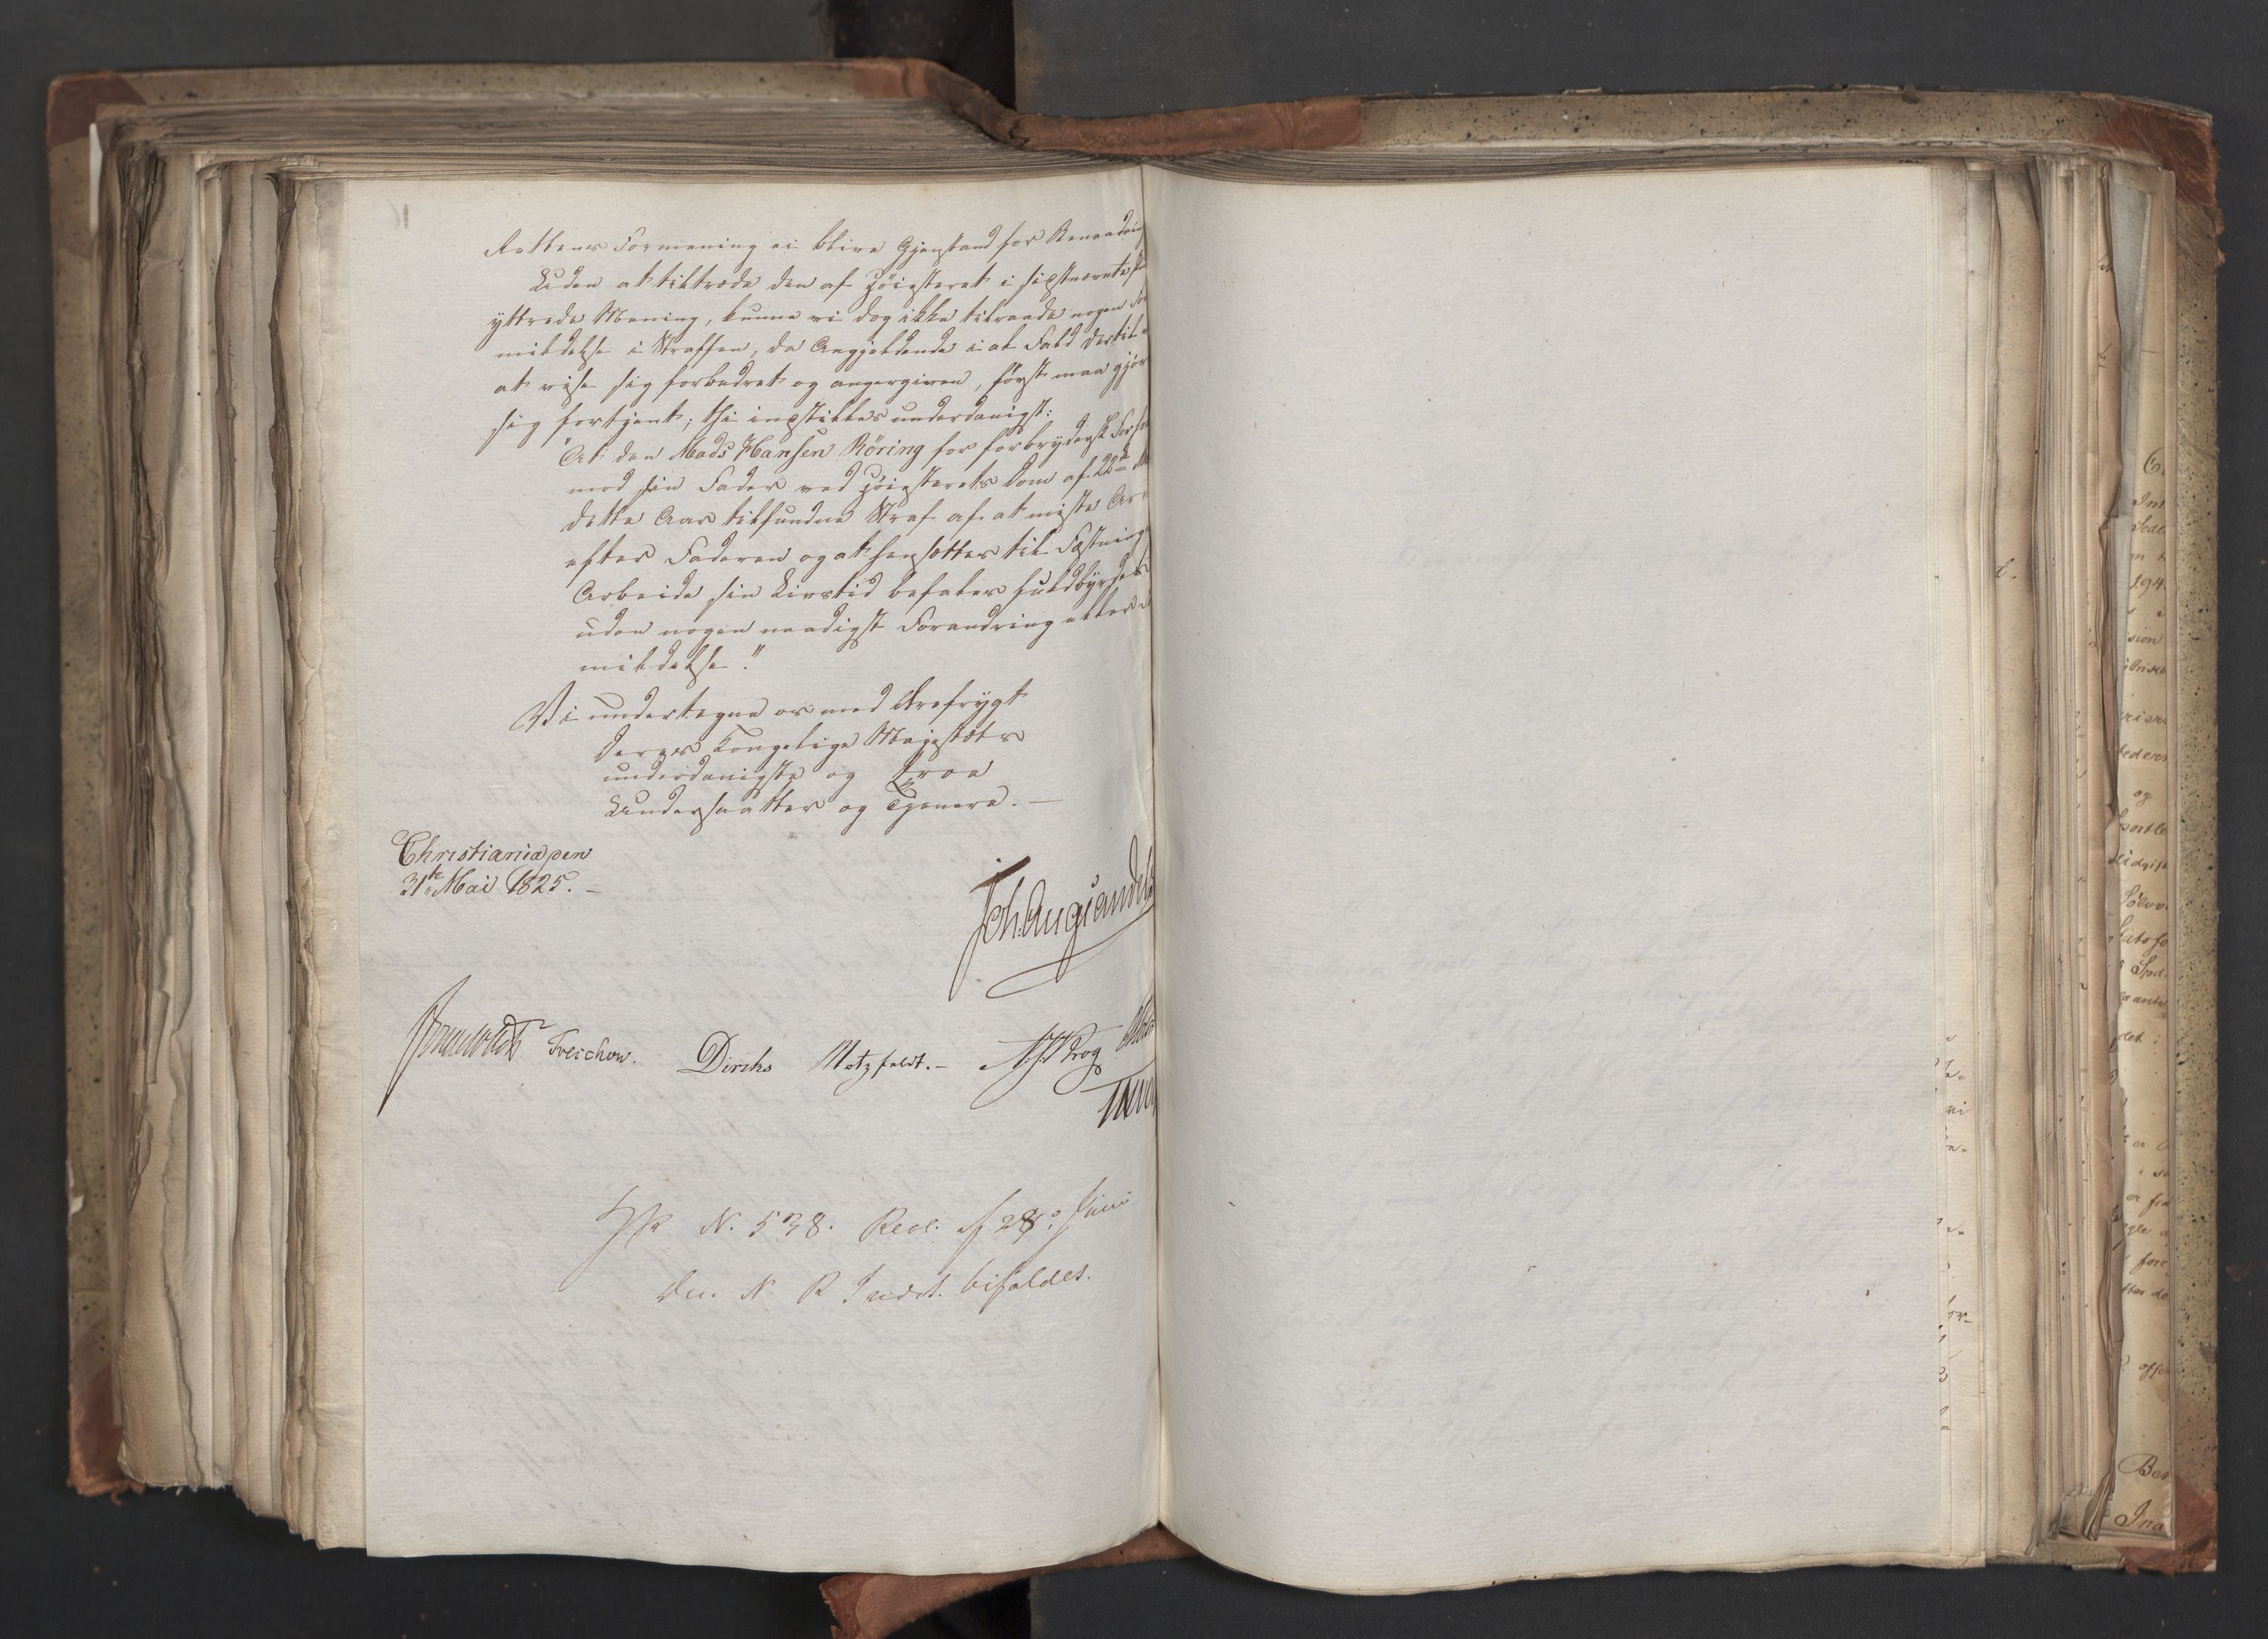 Rettens Formening ei blive Gjenstand for Benaadning
Uden at tiltræde den af Høiesteret i sidstnævnte
yttrede Mening, kunne vi dog ikke tilraade nogen For
mildelse i Straffen, da Angjeldende i al Fald dertil
at vise sig forbedret og angergiven, först maa gjøre
sig fortjent; thi indstilles underdanigst:
"At den Mads Hansen Röring for forbrydersk Forhold
mod sin Fader ved Høiesterets Dom af 22de
dette Aar tilfundne Straf af at miste Arv
efter Faderen og at hensættes til Fæstnings
Arbeide sin Livstid befales fuldbyrdet
uden nogen naadigst Forandring eller
mildelse."
Vi undertegne os med Ærefrygt
Deres Kongelige Majestæts
underdanigste og troe
Undersaatter og Tjenere. —
Christiania den
31te Mai 1825. –
Joh. Aug. Sandels
Sommerhielm Treschow. Diriks Motzfeldt. – Krog
N. 538. Resol. af 28de Juni
Den N. R. Indst. bifaldes.